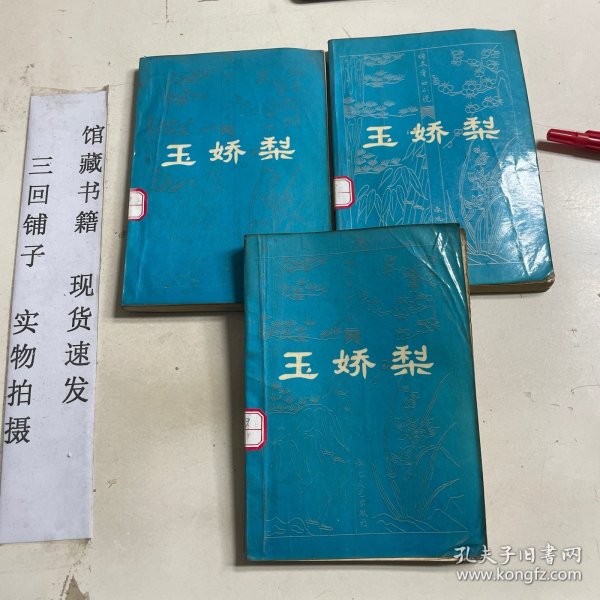 馆藏书籍 现货速发
三回铺子 实物拍摄
玉娇梨
玉娇梨
玉娇梨
孔夫子旧书网
www.kongfz.com